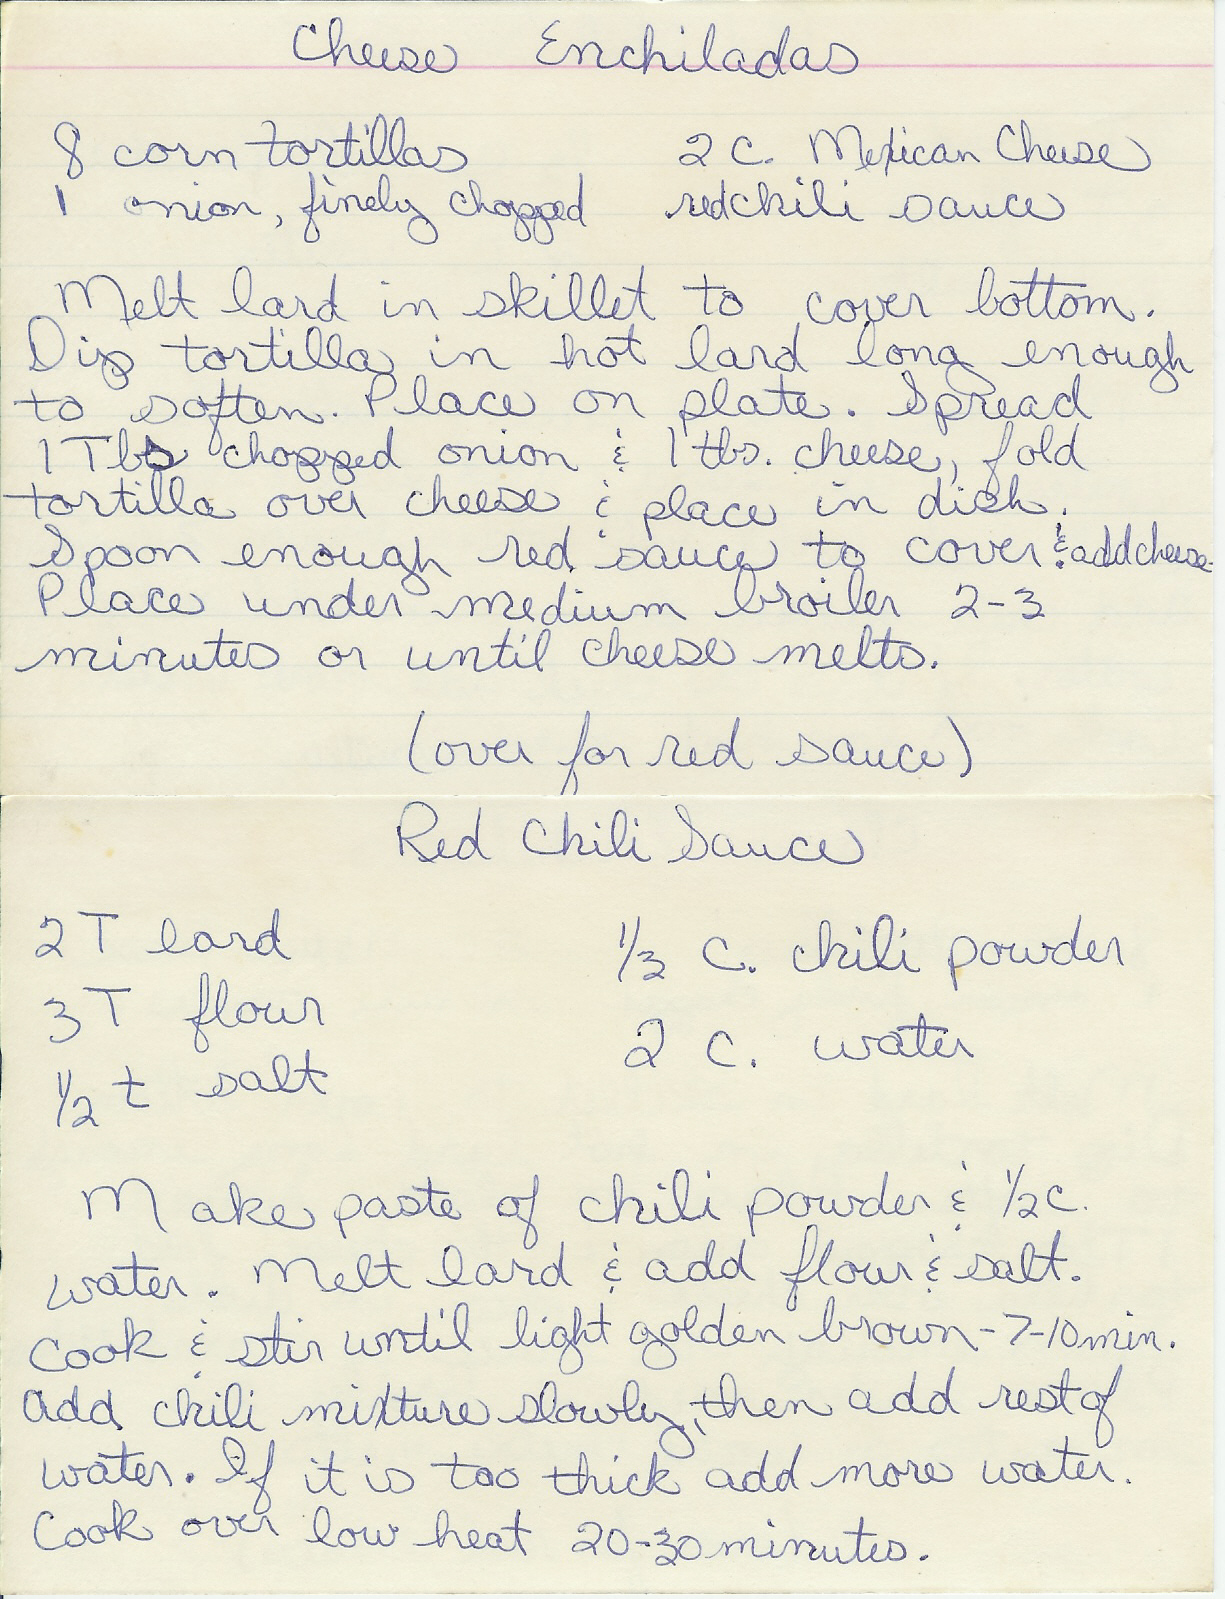 Cheese Enchiladas
8 corn tortillas 2 C. Mexican Cheese
1 onion, finely chopped red chili sauce
Melt lard in skillet to cover bottom.
Dip tortilla in hot lard long enough
to soften. Place on plate. Spread
1 Tbs chopped onion & 1 tbs. cheese, fold
tortilla over cheese & place in dish.
Spoon enough red sauce to cover & add cheese.
Place under medium broiler 2-3
minutes or until cheese melts.
(over for red sauce)
Red Chili Sauce
2 T lard 1/3 C. chili powder
3 T flour 2 C. water
1/2 t salt
Make paste of chili powder & 1/2 C.
water. Melt lard & add flour & salt.
Cook & stir until light golden brown - 7-10 min.
Add chili mixture slowly, then add rest of
water. If it is too thick add more water.
Cook over low heat 20-30 minutes.